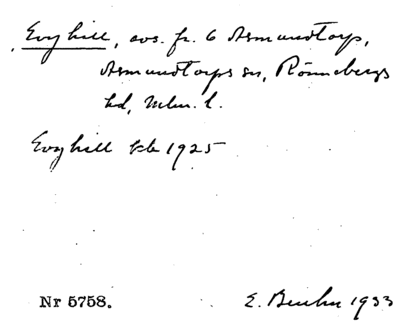 Evyhill, avs. fr. 6 Asmundtorp,
Asmundtorps sn, Rönnebergs
hd, Mlm. l.
Evyhill kb 1925
Nr 5758. E. 1933